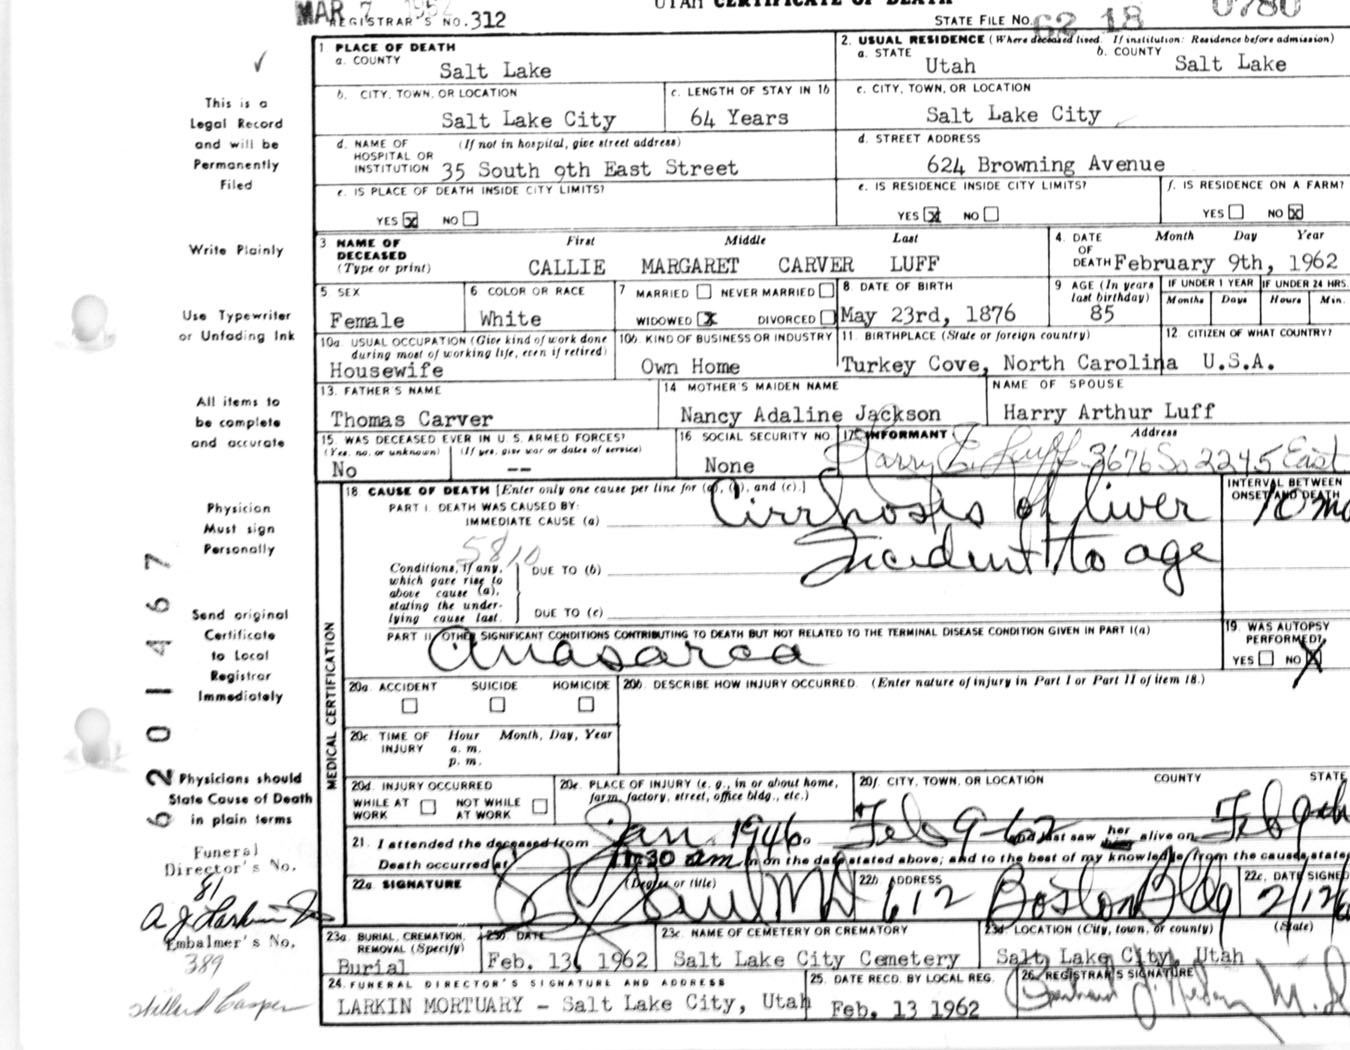 MAR 7 1962
UTAH CERTIFICATE OF DEATH
REGISTRAR'S NO. 312
STATE FILE NO. 62 18 0780
1 PLACE OF DEATH
a. COUNTY
Salt Lake
2. USUAL RESIDENCE (Where deceased lived. If institution: Residence before admission)
a. STATE b. COUNTY
Utah Salt Lake
b. CITY, TOWN, OR LOCATION
Salt Lake City
c. LENGTH OF STAY IN 1b
64 Years
c. CITY, TOWN, OR LOCATION
Salt Lake City
d. NAME OF HOSPITAL OR INSTITUTION (If not in hospital, give street address)
35 South 9th East Street
d. STREET ADDRESS
624 Browning Avenue
e. IS PLACE OF DEATH INSIDE CITY LIMITS?
YES x NO
e. IS RESIDENCE INSIDE CITY LIMITS?
YES x NO
f. IS RESIDENCE ON A FARM?
YES NO x
3 NAME OF DECEASED (Type or print)
First Middle Last
CALLIE MARGARET CARVER LUFF
4. DATE OF DEATH
Month Day Year
February 9th, 1962
5 SEX
Female
6 COLOR OR RACE
White
7 MARRIED NEVER MARRIED
WIDOWED x DIVORCED
8 DATE OF BIRTH
May 23rd, 1876
9 AGE (In years last birthday)
85
IF UNDER 1 YEAR
Months Days
IF UNDER 24 HRS.
Hours Min.
10a USUAL OCCUPATION (Give kind of work done during most of working life, even if retired)
Housewife
10b. KIND OF BUSINESS OR INDUSTRY
Own Home
11. BIRTHPLACE (State or foreign country)
Turkey Cove, North Carolina
12 CITIZEN OF WHAT COUNTRY?
U.S.A.
13. FATHER'S NAME
Thomas Carver
14 MOTHER'S MAIDEN NAME
Nancy Adaline Jackson
NAME OF SPOUSE
Harry Arthur Luff
15. WAS DECEASED EVER IN U.S. ARMED FORCES?
(Yes, no, or unknown) (If yes, give war or dates of service)
No --
16 SOCIAL SECURITY NO.
None
17. INFORMANT Address
Harry E. Luff 3676 So 2245 East
18. CAUSE OF DEATH [Enter only one cause per line for (a), (b), and (c).]
PART I. DEATH WAS CAUSED BY:
IMMEDIATE CAUSE (a) Cirrhosis of liver
INTERVAL BETWEEN ONSET AND DEATH
10 mo
5810
incident to age
Conditions, if any, which gave rise to above cause (a), stating the underlying cause last.
DUE TO (b)
DUE TO (c)
PART II. OTHER SIGNIFICANT CONDITIONS CONTRIBUTING TO DEATH BUT NOT RELATED TO THE TERMINAL DISEASE CONDITION GIVEN IN PART I(a)
Anasarca
19. WAS AUTOPSY PERFORMED?
YES NO X
MEDICAL CERTIFICATION
20a. ACCIDENT SUICIDE HOMICIDE
20b. DESCRIBE HOW INJURY OCCURRED. (Enter nature of injury in Part I or Part II of item 18.)
20c. TIME OF INJURY
Hour Month, Day, Year
a. m.
p. m.
20d. INJURY OCCURRED
WHILE AT WORK NOT WHILE AT WORK
20e. PLACE OF INJURY (e. g., in or about home, farm, factory, street, office bldg., etc.)
20f. CITY, TOWN, OR LOCATION COUNTY STATE
21. I attended the deceased from Jan. 1946 to Feb 9-62 and last saw her alive on Feb 9th
Death occurred at 11:30 am on the date stated above; and to the best of my knowledge, from the causes stated
22a. SIGNATURE (Degree or title)
MD
22b ADDRESS
612 Boston Bldg
22c. DATE SIGNED
2/12/6
23a. BURIAL, CREMATION, REMOVAL (Specify)
Burial
23b. DATE
Feb. 13, 1962
23c. NAME OF CEMETERY OR CREMATORY
Salt Lake City Cemetery
23d LOCATION (City, town, or county) (State)
Salt Lake City, Utah
24. FUNERAL DIRECTOR'S SIGNATURE AND ADDRESS
LARKIN MORTUARY - Salt Lake City, Utah
25. DATE RECD. BY LOCAL REG.
Feb. 13 1962
26. REGISTRAR'S SIGNATURE
This is a
Legal Record
and will be
Permanently
Filed
Write Plainly
Use Typewriter
or Unfading Ink
All items to
be complete
and accurate
Physician
Must sign
Personally
Send original
Certificate
to Local
Registrar
Immediately
Physicians should
State Cause of Death
in plain terms
Funeral
Director's No.
81
Embalmer's No.
389
6201467